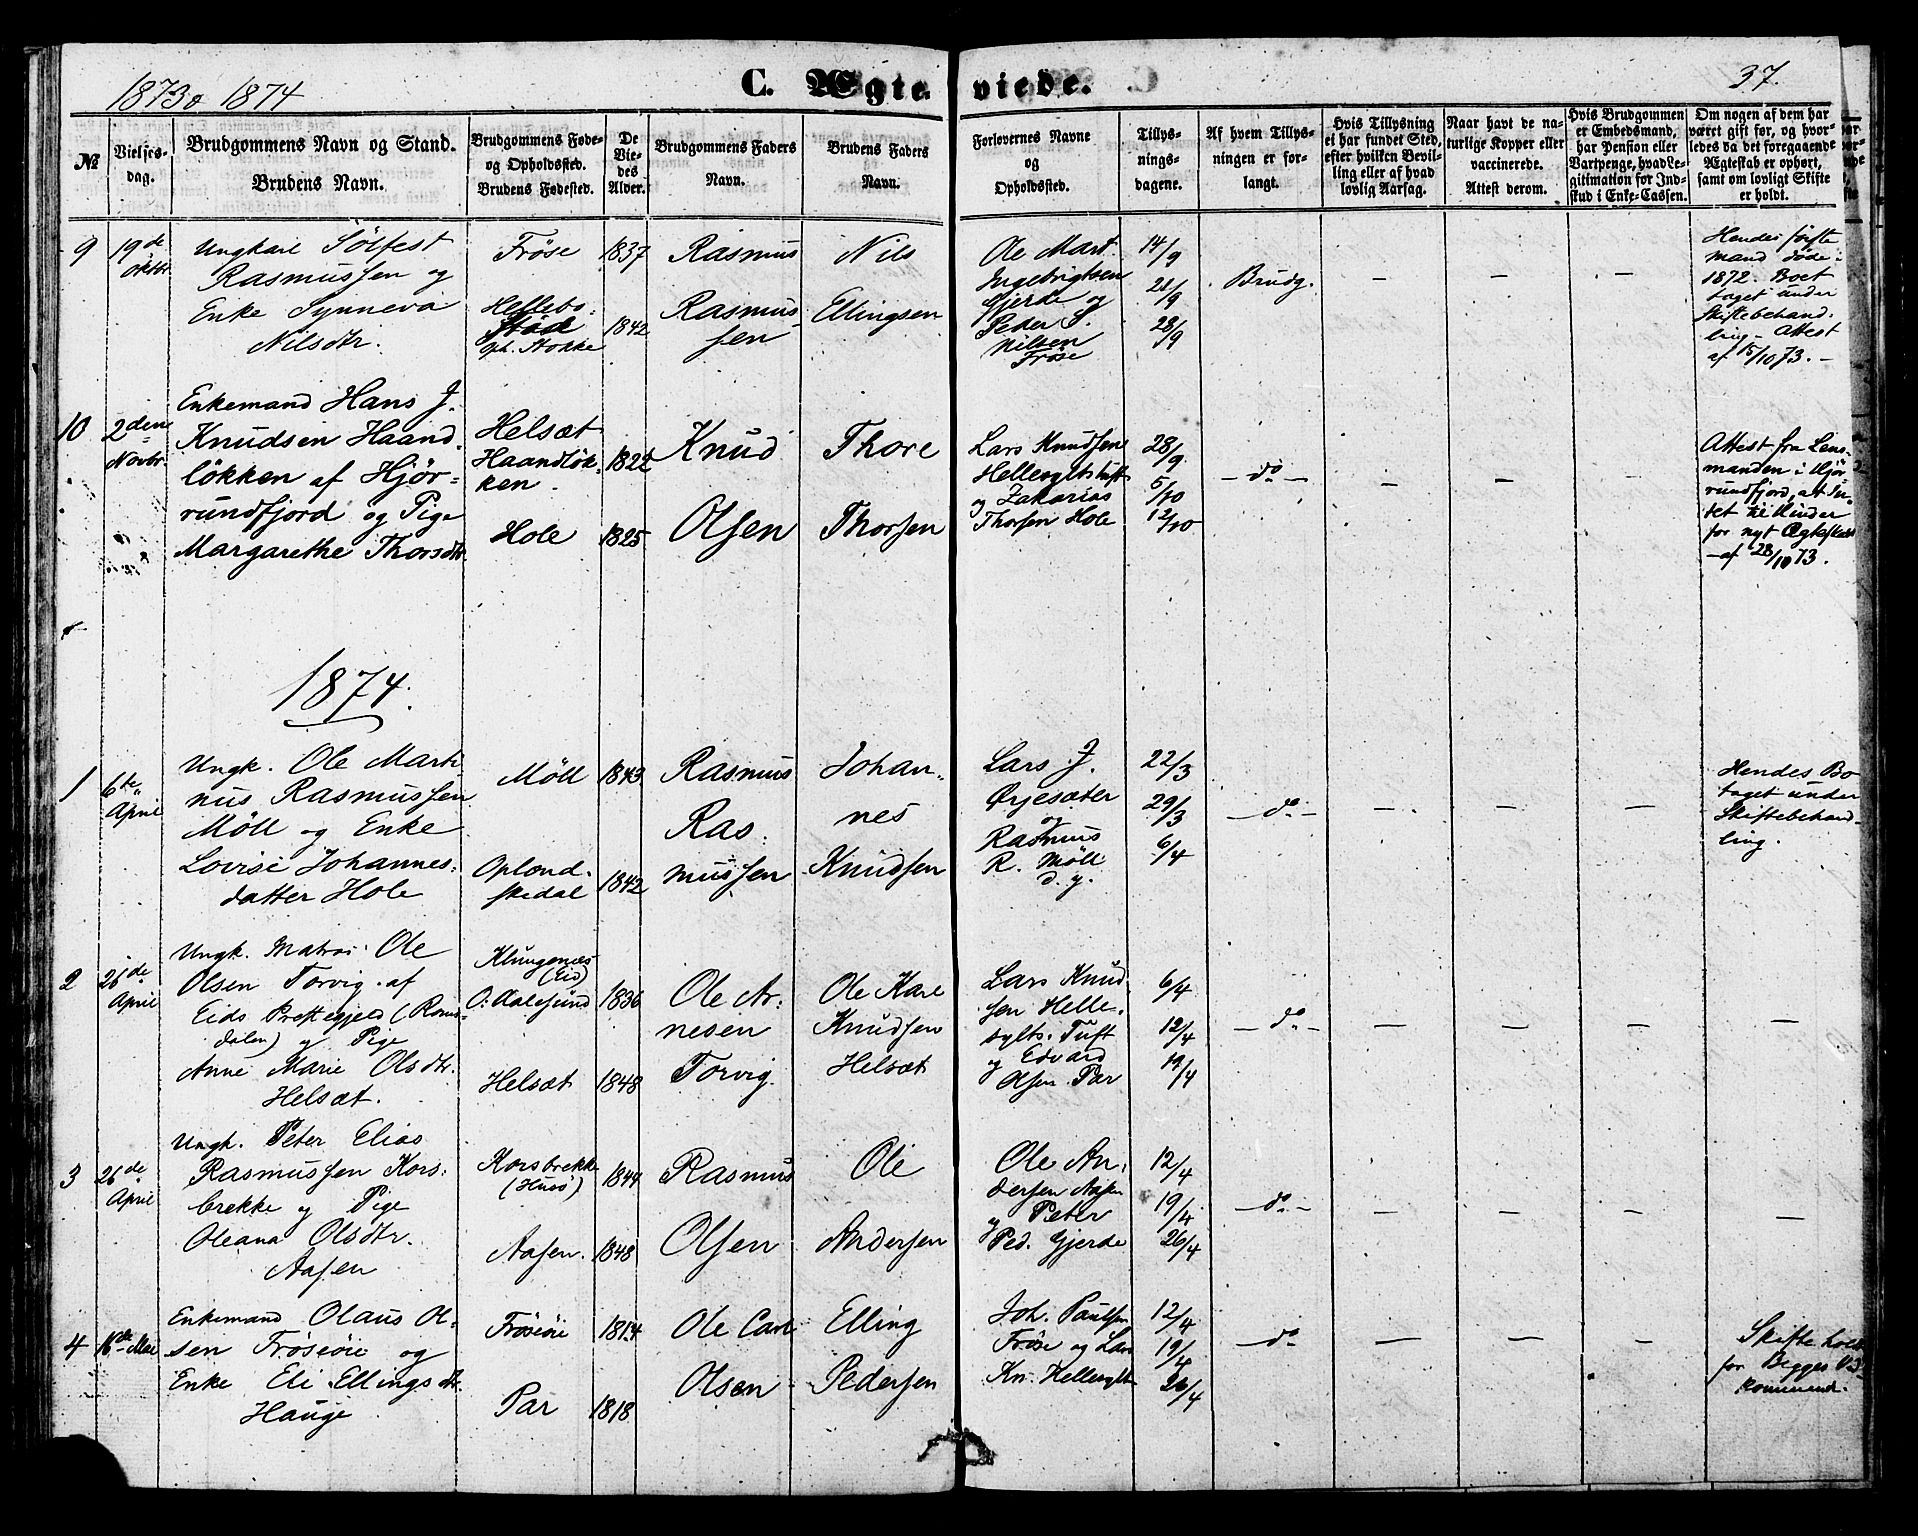 1873 o 1874
C. Ægteviede.
37.
№
Vielses-
dag.
Brudgommens Navn og Stand.
Brudens Navn.
Brudgommens Føde-
og Opholdssted.
Brudens Fødested.
De
Vie-
des
Alder.
Brudgommens Faders
Navn.
Brudens Faders
Navn.
Forlovernes Navne
og
Opholdssted.
Tillys-
nings-
dagene.
Af hvem Tillys-
ningen er for-
langt.
Hvis Tillysning
ei har fundet Sted,
efter hvilken Bevil-
ling eller af hvad
lovlig Aarsag.
Naar havt de na-
turlige Kopper eller
vaccinerede.
Attest derom.
Hvis Brudgommen
er Embedsmand,
har Pension eller
Vartpenge, hvad Le-
gitimation for Ind-
skud i Enke-Cassen.
Om nogen af dem har
været gift før, og hvor-
ledes da det foregaaende
Ægteskab er ophørt,
samt om lovligt Skifte
er holdt.
9
19de
Oktbr
Ungkarl Sølfest
Rasmussen og
Enke Synneva
Nilsdtr.
Frøse
Hellebo-
Stød
oph. Stokke
1837
1842
Rasmus
Rasmus
sen
Nils
Ellingsen
Ole Mart.
Ingebrigtsen
Gjerde og
Peder S.
Nilsen
Frøse
14/9
21/9
28/9
Brudg.
— — —
Hendes første
mand døde i
1872. Boet
taget under
Skiftebehand-
ling - Attest
af 15/10 73. —
10
2den
Novbr
Enkemand Hans J.
Knudsen Haand
løkken af Hjør-
rundfjord og Pige
Margarethe Thorsdtr
Helsæt
Haandløk-
ken.
Hole
1822
1825
Knud
Olsen
Thore
Thorsen
Lars Knudsen
Hellesyltstuft
og Zakarias
Thorsen Hole
28/9
5/10
12/10
— do —
— — —
Attest fra Lens-
manden i Hjør
rundfjord, at In-
tet til Hinder
for nyt Ægteskab
— af 28/10 73.
1874.
1
6te
April
Ungk. Ole Marti-
nus Rasmussen
Möll og Enke
Lovise Johannes-
datter Hole
Möll
Oplend-
skedal
1843
1842
Rasmus
Ras-
mussen
Johan-
nes
Knudsen
Lars J.
Ørjesæter
og
Rasmus
R. Möll
d. y.
22/3
29/3
6/4
— do —
— — —
Hendes Bo
taget under
Skiftebehand-
ling.
2
26de
April
Ungk. Matros Ole
Olsen Torvig af
Eids Præstegjeld (Roms-
dalen) og Pige
Anne Marie Olsdtr.
Helsæt.
Klungenæs
(Eid)
O: Aalesund
Helsæt
1836
1848
Ole Ar-
nesen
Torvig
Ole Karl
Knudsen
Helsæt
Lars Knud
sen Helle-
sylts-Tuft
og Edvard
Olsen Tar
6/4
12/4
19/4
— do —
— — — —
3
26de
April
Ungk. Peter Elias
Rasmussen Kors-
brekke og Pige
Oleana Olsdtr.
Aasen
Korsbrekke
(Husø)
Aasen.
1844
1848
Rasmus
Olsen
Ole
Andersen
Ole An-
dersen Aasen
og Peter
Ped. Gjerde
12/4
19/4
26/4
— do —
— — — —
4
16de Mai
Enkemand Olaus Ol-
sen Frøseøie og
Enke Eli Ellingsdtr
Hauge
Frøseøie
Par
1814
1818
Ole Carl
Olsen
Elling
Pedersen
Joh. Paulsen
Frøse og Lars
Kn. Hellesylt
12/4
19/4
26/4
— do
— — —
Skifte hold
for Begges Ved-
kommend.